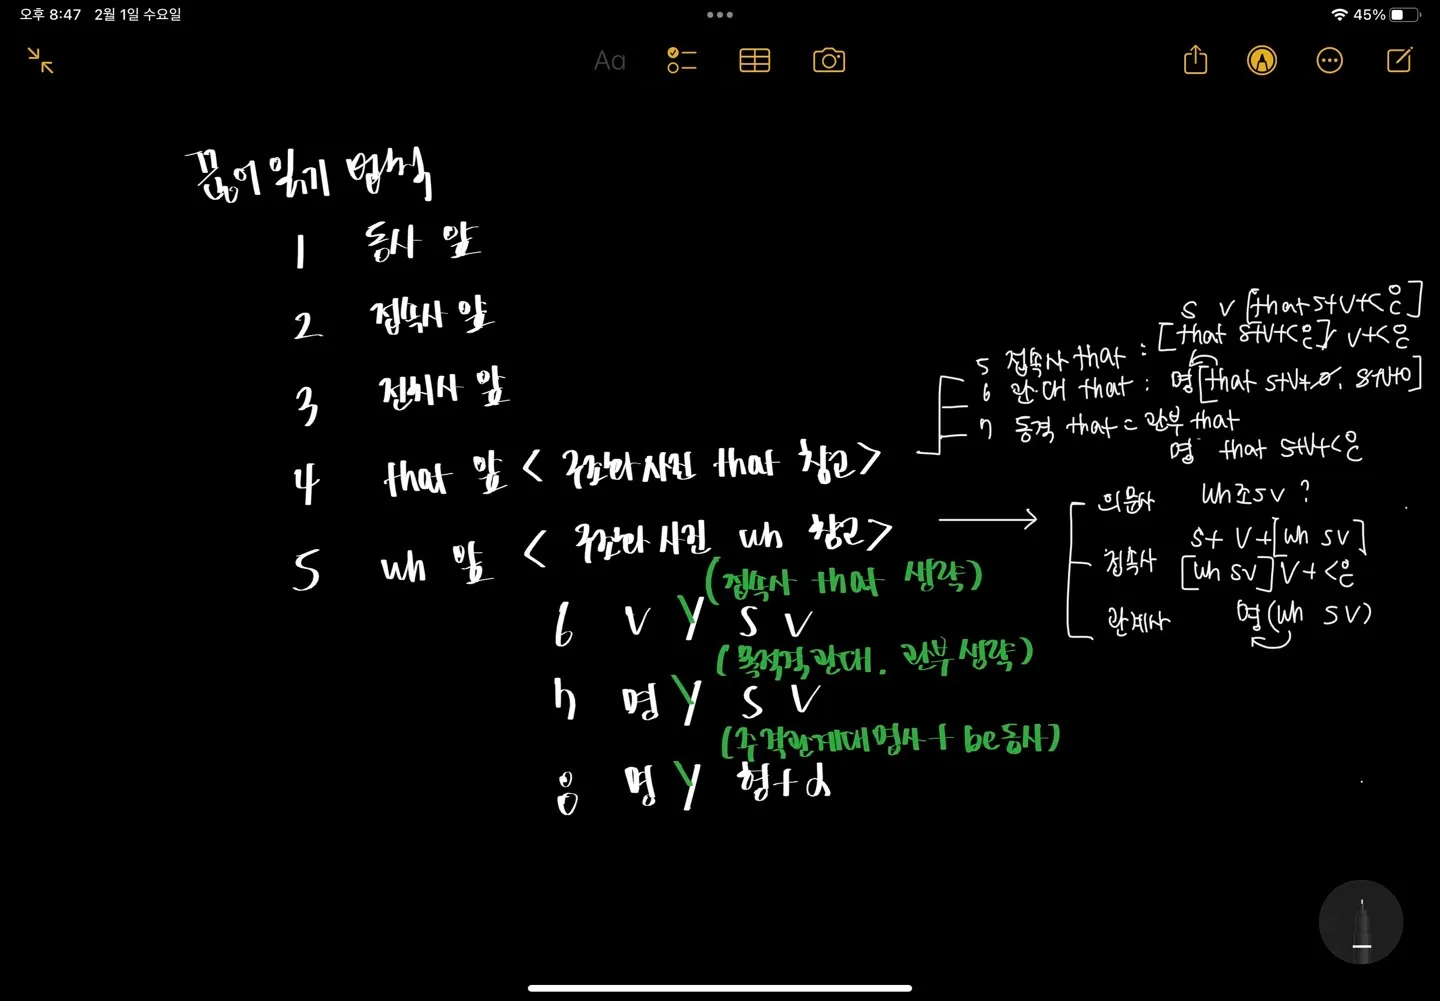 오후 8:47 2월 1일 수요일
45%
Aa
끊어 읽기 법칙
1 동사 앞
2 접속사 앞
3 전치사 앞
4 that 앞 < 구조화사진 that 참고>
5 wh 앞 < 구조화사진 wh 참고>
(접속사 that 생략)
6 V S V
(목적격관대. 관부생략)
7 명 S V
(주격관계대명사+be동사)
8 명 형+
S V [that S+V+
[that S+V+ V+
5 접속사 that :
6 관대 that : 명[that S+V+
7 동격 that = 관부 that
명 that S+V+
의문사 Wh조SV ?
접속사 S+ V+[Wh SV]
[Wh SV] V+
관계사 명(Wh SV)